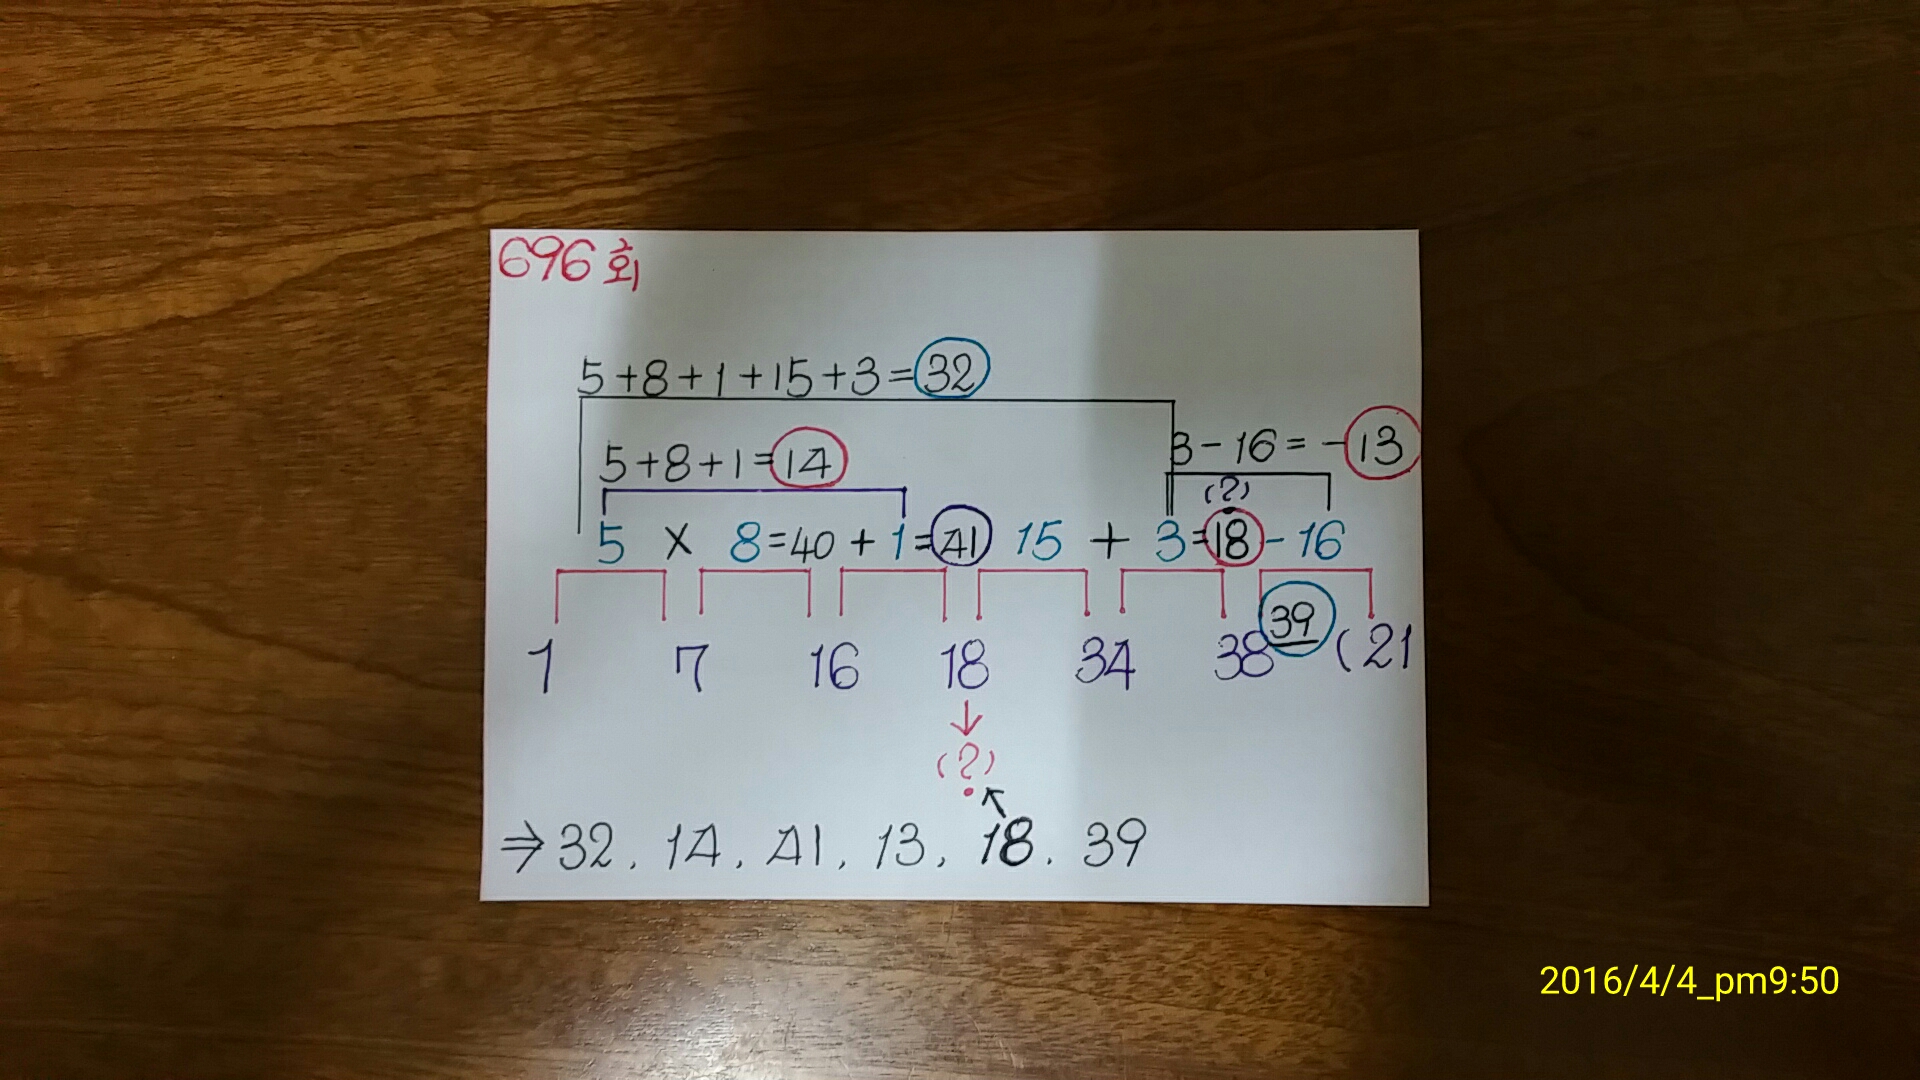 696회
5+8+1+15+3=32
5+8+1=14
3-16=-13
(?)
5 × 8=40+1=41 15 + 3=18-16
39
1 7 16 18 34 38 (21
↓
(?)
⇒32, 14, 41, 13, 18, 39
2016/4/4_pm9:50